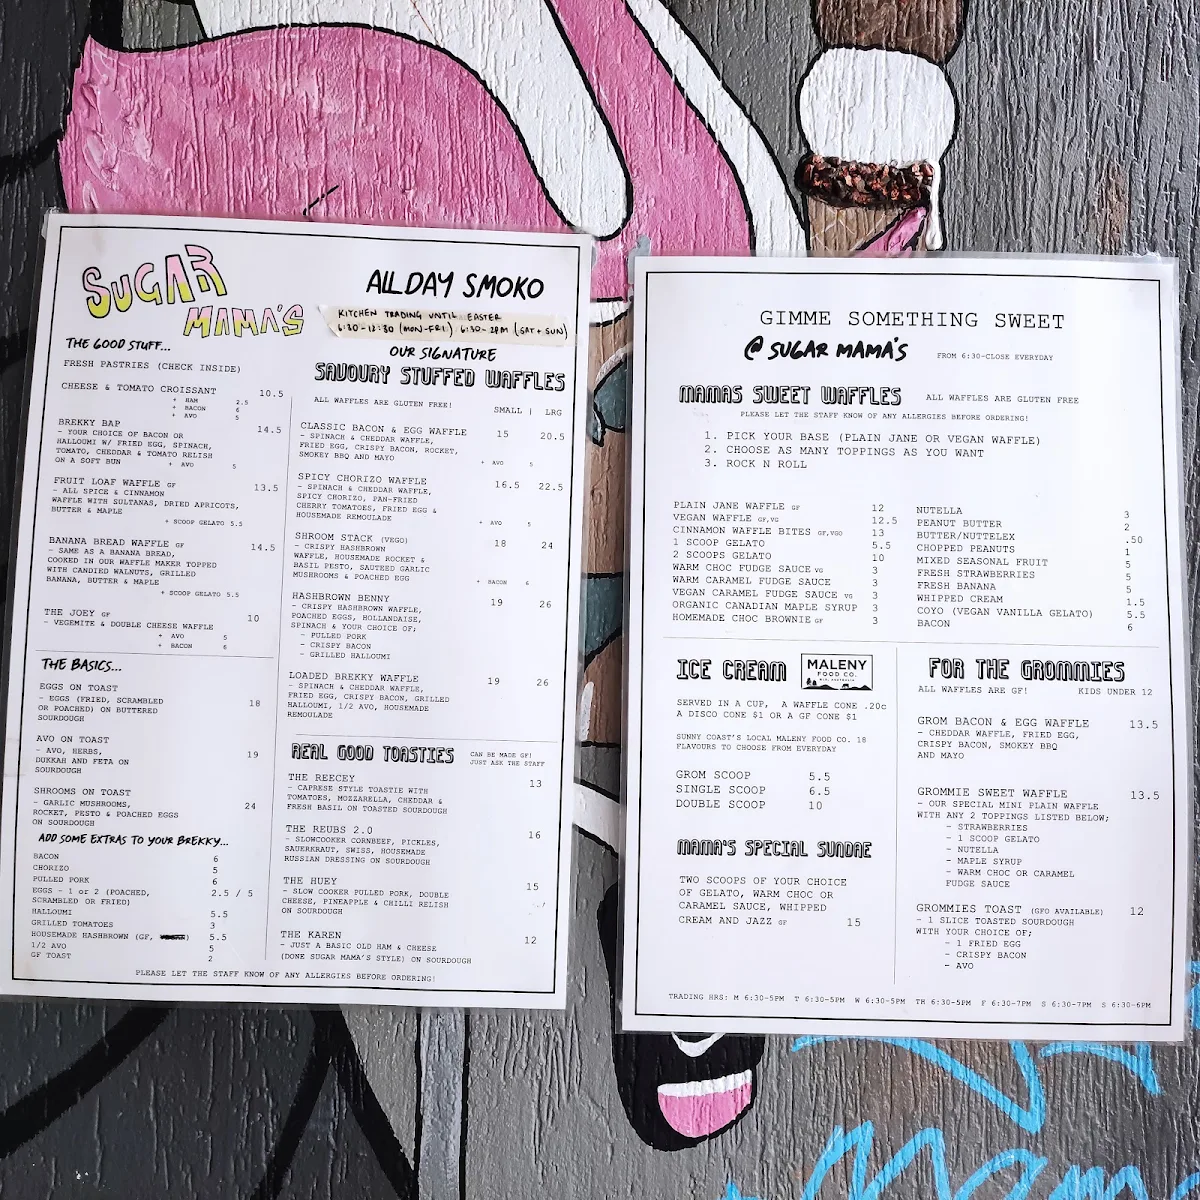 SUGAR
MAMA'S
ALL DAY SMOKO
KITCHEN TRADING UNTIL EASTER
6:30-12:30 (MON-FRI) 6:30-2PM (SAT + SUN)
THE GOOD STUFF...
FRESH PASTRIES (CHECK INSIDE)
CHEESE & TOMATO CROISSANT 10.5
+ HAM 2.5
+ BACON 6
+ AVO 5
BREKKY BAP 14.5
- YOUR CHOICE OF BACON OR
HALLOUMI W/ FRIED EGG, SPINACH,
TOMATO, CHEDDAR & TOMATO RELISH
ON A SOFT BUN + AVO 5
FRUIT LOAF WAFFLE GF 13.5
- ALL SPICE & CINNAMON
WAFFLE WITH SULTANAS, DRIED APRICOTS,
BUTTER & MAPLE
+ SCOOP GELATO 5.5
BANANA BREAD WAFFLE GF 14.5
- SAME AS A BANANA BREAD,
COOKED IN OUR WAFFLE MAKER TOPPED
WITH CANDIED WALNUTS, GRILLED
BANANA, BUTTER & MAPLE
+ SCOOP GELATO 5.5
THE JOEY GF 10
- VEGEMITE & DOUBLE CHEESE WAFFLE
+ AVO 5
+ BACON 6
THE BASICS...
EGGS ON TOAST 18
- EGGS (FRIED, SCRAMBLED
OR POACHED) ON BUTTERED
SOURDOUGH
AVO ON TOAST 19
- AVO, HERBS,
DUKKAH AND FETA ON
SOURDOUGH
SHROOMS ON TOAST 24
- GARLIC MUSHROOMS,
ROCKET, PESTO & POACHED EGGS
ON SOURDOUGH
ADD SOME EXTRAS TO YOUR BREKKY...
BACON 6
CHORIZO 5
PULLED PORK 6
EGGS - 1 or 2 (POACHED, 2.5 / 5
SCRAMBLED OR FRIED)
HALLOUMI 5.5
GRILLED TOMATOES 3
HOUSEMADE HASHBROWN (GF, ) 5.5
1/2 AVO 5
GF TOAST 2
OUR SIGNATURE
SAVOURY STUFFED WAFFLES
ALL WAFFLES ARE GLUTEN FREE! SMALL | LRG
CLASSIC BACON & EGG WAFFLE 15 20.5
- SPINACH & CHEDDAR WAFFLE,
FRIED EGG, CRISPY BACON, ROCKET,
SMOKEY BBQ AND MAYO + AVO 5
SPICY CHORIZO WAFFLE 16.5 22.5
- SPINACH & CHEDDAR WAFFLE,
SPICY CHORIZO, PAN-FRIED
CHERRY TOMATOES, FRIED EGG &
HOUSEMADE REMOULADE + AVO 5
SHROOM STACK (VEGO) 18 24
- CRISPY HASHBROWN
WAFFLE, HOUSEMADE ROCKET &
BASIL PESTO, SAUTEED GARLIC
MUSHROOMS & POACHED EGG + BACON 6
HASHBROWN BENNY 19 26
- CRISPY HASHBROWN WAFFLE,
POACHED EGGS, HOLLANDAISE,
SPINACH & YOUR CHOICE OF;
- PULLED PORK
- CRISPY BACON
- GRILLED HALLOUMI
LOADED BREKKY WAFFLE 19 26
- SPINACH & CHEDDAR WAFFLE,
FRIED EGG, CRISPY BACON, GRILLED
HALLOUMI, 1/2 AVO, HOUSEMADE
REMOULADE
REAL GOOD TOASTIES CAN BE MADE GF!
JUST ASK THE STAFF
THE REECEY 13
- CAPRESE STYLE TOASTIE WITH
TOMATOES, MOZZARELLA, CHEDDAR &
FRESH BASIL ON TOASTED SOURDOUGH
THE REUBS 2.0 16
- SLOWCOOKER CORNBEEF, PICKLES,
SAUERKRAUT, SWISS, HOUSEMADE
RUSSIAN DRESSING ON SOURDOUGH
THE HUEY 15
- SLOW COOKER PULLED PORK, DOUBLE
CHEESE, PINEAPPLE & CHILLI RELISH
ON SOURDOUGH
THE KAREN 12
- JUST A BASIC OLD HAM & CHEESE
(DONE SUGAR MAMA'S STYLE) ON SOURDOUGH
PLEASE LET THE STAFF KNOW OF ANY ALLERGIES BEFORE ORDERING!
GIMME SOMETHING SWEET
@ SUGAR MAMA'S FROM 6:30-CLOSE EVERYDAY
MAMAS SWEET WAFFLES ALL WAFFLES ARE GLUTEN FREE
PLEASE LET THE STAFF KNOW OF ANY ALLERGIES BEFORE ORDERING!
1. PICK YOUR BASE (PLAIN JANE OR VEGAN WAFFLE)
2. CHOOSE AS MANY TOPPINGS AS YOU WANT
3. ROCK N ROLL
PLAIN JANE WAFFLE GF 12
VEGAN WAFFLE GF,VG 12.5
CINNAMON WAFFLE BITES GF,VGO 13
1 SCOOP GELATO 5.5
2 SCOOPS GELATO 10
WARM CHOC FUDGE SAUCE VG 3
WARM CARAMEL FUDGE SAUCE 3
VEGAN CARAMEL FUDGE SAUCE VG 3
ORGANIC CANADIAN MAPLE SYRUP 3
HOMEMADE CHOC BROWNIE GF 3
NUTELLA 3
PEANUT BUTTER 2
BUTTER/NUTTELEX .50
CHOPPED PEANUTS 1
MIXED SEASONAL FRUIT 5
FRESH STRAWBERRIES 5
FRESH BANANA 5
WHIPPED CREAM 1.5
COYO (VEGAN VANILLA GELATO) 5.5
BACON 6
ICE CREAM
MALENY
FOOD CO.
SERVED IN A CUP, A WAFFLE CONE .20c
A DISCO CONE $1 OR A GF CONE $1
SUNNY COAST'S LOCAL MALENY FOOD CO. 18
FLAVOURS TO CHOOSE FROM EVERYDAY
GROM SCOOP 5.5
SINGLE SCOOP 6.5
DOUBLE SCOOP 10
MAMA'S SPECIAL SUNDAE
TWO SCOOPS OF YOUR CHOICE
OF GELATO, WARM CHOC OR
CARAMEL SAUCE, WHIPPED
CREAM AND JAZZ GF 15
FOR THE GROMMIES
ALL WAFFLES ARE GF! KIDS UNDER 12
GROM BACON & EGG WAFFLE 13.5
- CHEDDAR WAFFLE, FRIED EGG,
CRISPY BACON, SMOKEY BBQ
AND MAYO
GROMMIE SWEET WAFFLE 13.5
- OUR SPECIAL MINI PLAIN WAFFLE
WITH ANY 2 TOPPINGS LISTED BELOW;
- STRAWBERRIES
- 1 SCOOP GELATO
- NUTELLA
- MAPLE SYRUP
- WARM CHOC OR CARAMEL
FUDGE SAUCE
GROMMIES TOAST (GFO AVAILABLE) 12
- 1 SLICE TOASTED SOURDOUGH
WITH YOUR CHOICE OF;
- 1 FRIED EGG
- CRISPY BACON
- AVO
TRADING HRS: M 6:30-5PM T 6:30-5PM W 6:30-5PM TH 6:30-5PM F 6:30-7PM S 6:30-7PM S 6:30-6PM